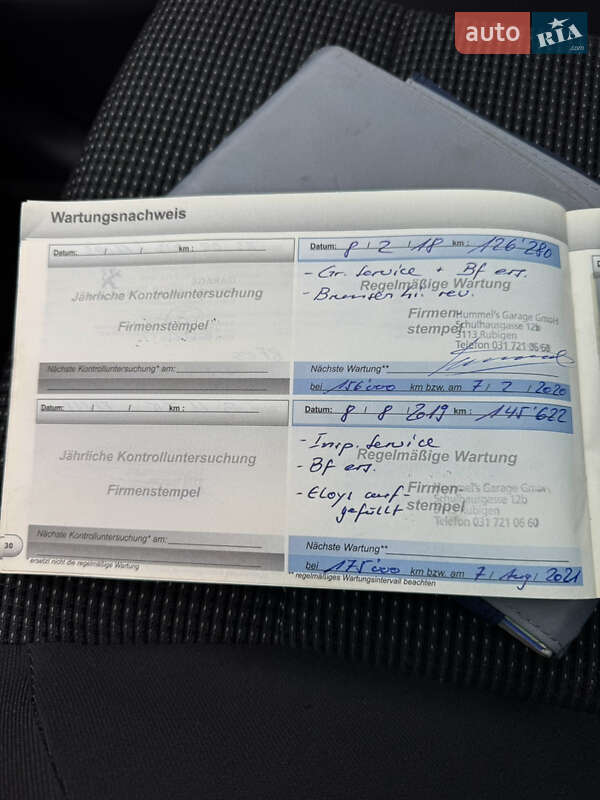 auto RIA .com
Wartungsnachweis
Datum: / / km :
Jährliche Kontrolluntersuchung
Firmenstempel
Nächste Kontrolluntersuchung* am:
Datum: 8 / 2 / 18 km : 126'280
- Gr. Service + Bf ers.
Regelmäßige Wartung
- Bremsen hi. rev.
Firmen-
stempel
Hummel's Garage GmbH
Schulhausgasse 12b
3113 Rubigen
Telefon 031 721 06 60
Nächste Wartung**
bei 156'000 km bzw. am 7 / 2 / 2020
Datum: / / km :
Jährliche Kontrolluntersuchung
Firmenstempel
Nächste Kontrolluntersuchung* am:
* ersetzt nicht die regelmäßige Wartung
30
Datum: 8 / 8 / 2019 km : 145'622
- Insp. Service
Regelmäßige Wartung
- Bf ers.
- Eloys auf-
gefüllt
Firmen-
stempel
Hummel's Garage GmbH
Schulhausgasse 12b
Rubigen
Telefon 031 721 06 60
Nächste Wartung**
bei 175'000 km bzw. am 7 / Aug / 2021
** regelmäßiges Wartungsintervall beachten